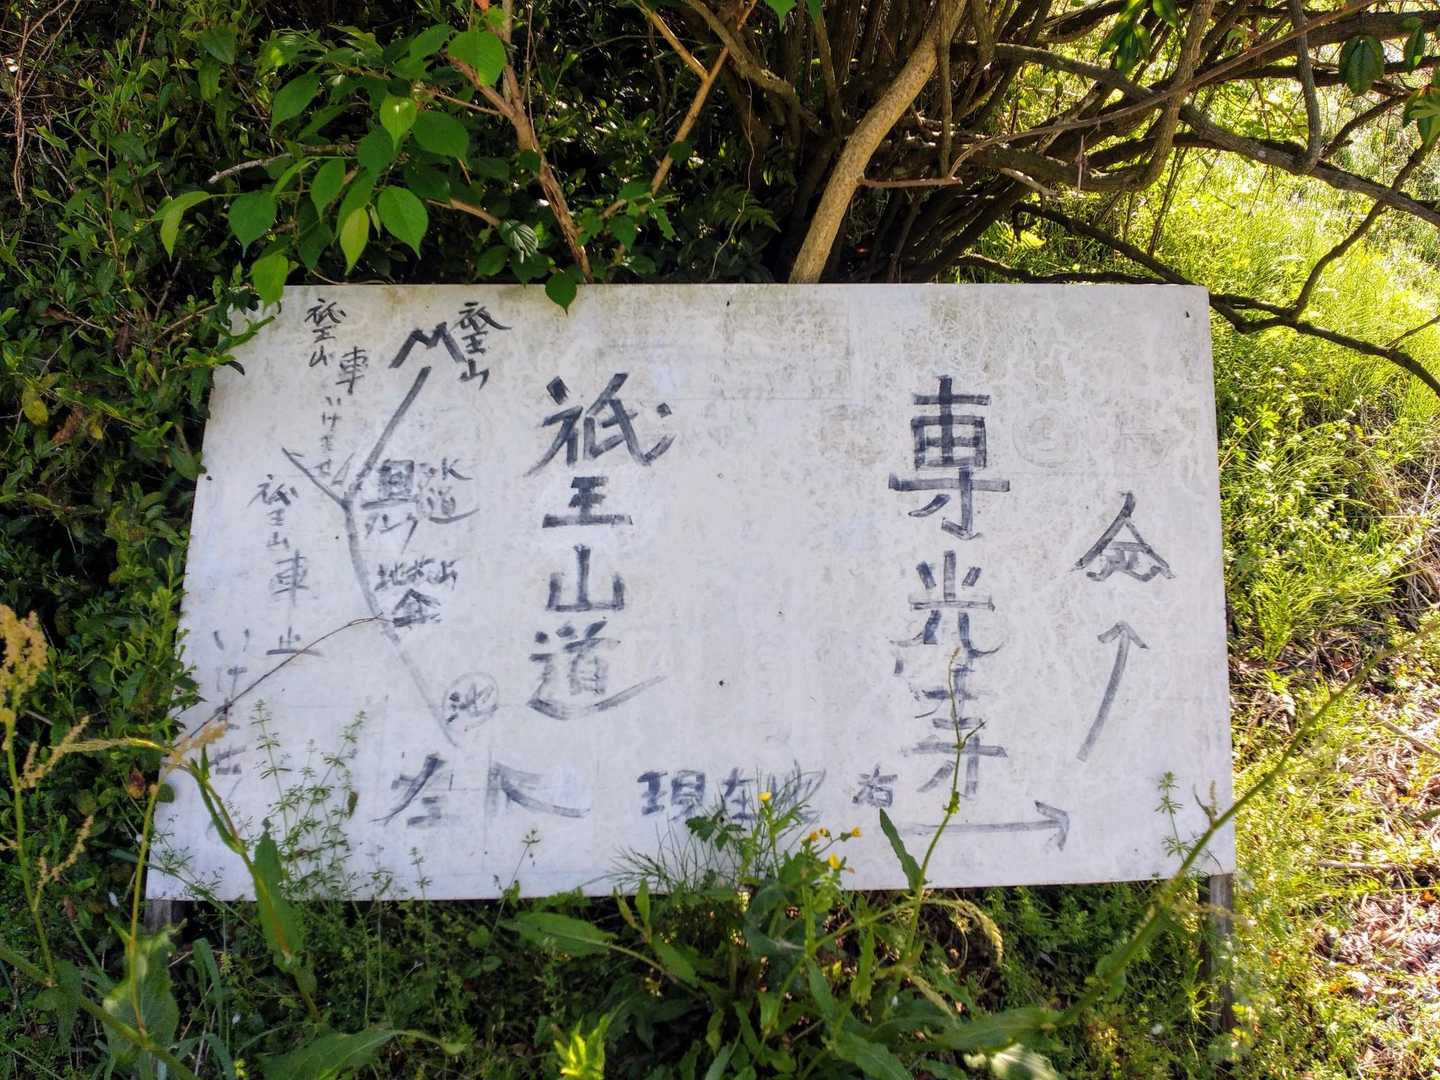 専光寺
右
現在地
祇王山道
左
祇王山
水道
池
祇王山
車
いけません
祇王山
車止
いけません